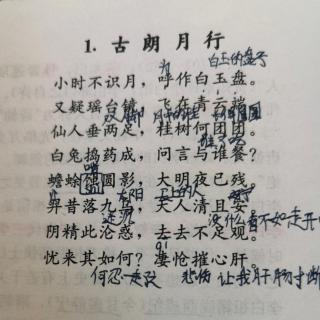 1. 古朗月行
白玉的盘子
为
小时不识月，呼作白玉盘。
又疑瑶台镜，飞在青云端。
双脚
仙人垂两足，桂树何团团。
白兔捣药成，问言与谁餐？
蟾蜍蚀圆影，大明夜已残。
天上的人
羿昔落九乌，天人清且安。
没什么看不如走开
阴精此沦惑，去去不足观。
忧来其如何？凄怆摧心肝。
何忍 悲伤 让我肝肠寸断